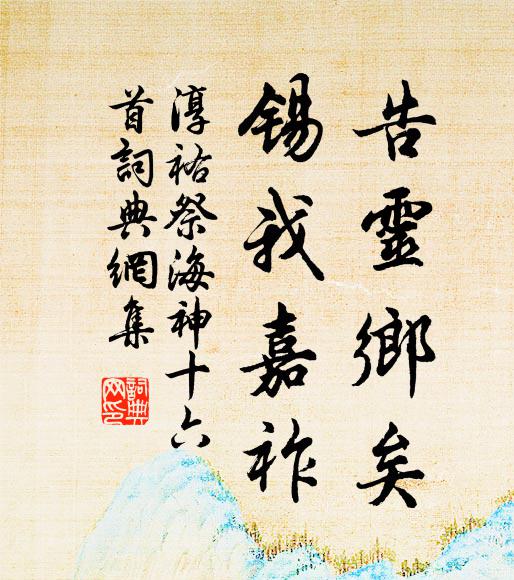 告靈鄉矣
錫我嘉祚
淳祐祭海神十六
首詞典網集
詞典网印